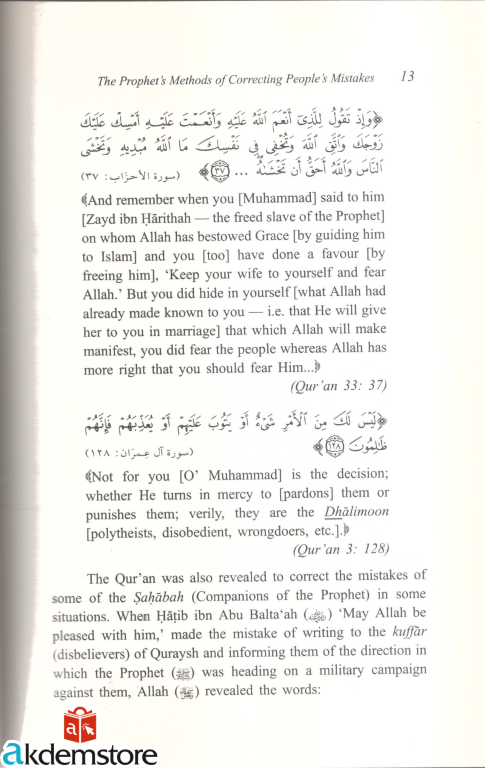 The Prophet's Methods of Correcting People's Mistakes 13
﴿وَإِذْ تَقُولُ لِلَّذِىٓ أَنْعَمَ ٱللَّهُ عَلَيْهِ وَأَنْعَمْتَ عَلَيْهِ أَمْسِكْ عَلَيْكَ
زَوْجَكَ وَٱتَّقِ ٱللَّهَ وَتُخْفِى فِى نَفْسِكَ مَا ٱللَّهُ مُبْدِيهِ وَتَخْشَى
ٱلنَّاسَ وَٱللَّهُ أَحَقُّ أَن تَخْشَىٰهُ ... ٣٧﴾ (سورة الأحزاب: ٣٧)
﴾And remember when you [Muhammad] said to him
[Zayd ibn Ḥārithah — the freed slave of the Prophet]
on whom Allah has bestowed Grace [by guiding him
to Islam] and you [too] have done a favour [by
freeing him], 'Keep your wife to yourself and fear
Allah.' But you did hide in yourself [what Allah had
already made known to you — i.e. that He will give
her to you in marriage] that which Allah will make
manifest, you did fear the people whereas Allah has
more right that you should fear Him...﴿
(Qur'an 33: 37)
﴿لَيْسَ لَكَ مِنَ ٱلْأَمْرِ شَىْءٌ أَوْ يَتُوبَ عَلَيْهِمْ أَوْ يُعَذِّبَهُمْ فَإِنَّهُمْ
ظَٰلِمُونَ ١٢٨﴾ (سورة آل عمران: ١٢٨)
﴾Not for you [O' Muhammad] is the decision;
whether He turns in mercy to [pardons] them or
punishes them; verily, they are the Dhālimoon
[polytheists, disobedient, wrongdoers, etc.].﴿
(Qur'an 3: 128)
The Qur'an was also revealed to correct the mistakes of
some of the Ṣaḥābah (Companions of the Prophet) in some
situations. When Ḥāṭib ibn Abu Balta'ah (رضي الله عنه) 'May Allah be
pleased with him,' made the mistake of writing to the kuffār
(disbelievers) of Quraysh and informing them of the direction in
which the Prophet (ﷺ) was heading on a military campaign
against them, Allah (ﷻ) revealed the words:
a
akdemstore